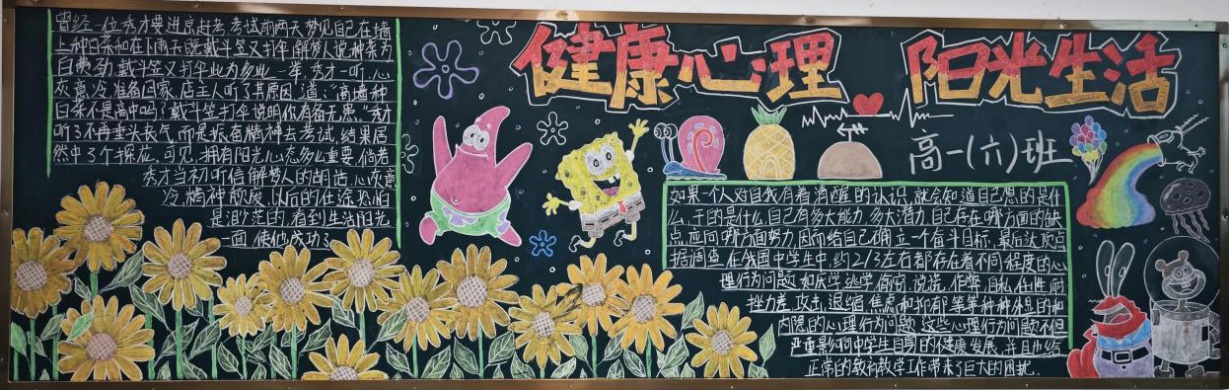 健康心理 阳光生活
高一(六)班
曾经一位秀才要进京赶考考试前两天梦见自己在墙
上种白菜和在下雨天既戴斗笠又打伞解梦人说种菜为
白费劲,戴斗笠又打伞此为多此一举,秀才一听,心
灰意冷准备回家,店主人听了其原因道:"高墙种
白菜不是高中吗?戴斗笠打伞说明你有备无患."秀才
听了不再垂头丧气,而是振奋精神去考试,结果居
然中了个探花,可见,拥有阳光心态多么重要,倘若
秀才当初听信解梦人的胡话,心灰意
冷,精神颓废,以后的仕途必将
是渺茫的,看到生活阳光
一面使他成功了
如果一个人对自我有着清醒的认识,就会知道自己想的是什
么,干的是什么,自己有多大能力,多大潜力,自己存在哪方面的缺
点,应向哪方面努力,因而给自己确立一个奋斗目标,最后达顶点
据调查,在我国中学生中,约2/3左右都存在着不同程度的心
理行为问题,如厌学,逃学,偷窃,说谎,作弊,自私,任性,耐
挫力差,攻击,退缩,焦虑和抑郁等等种种外显的和
内隐的心理行为问题,这些心理行为问题不但
严重影响中学生自身的健康发展,并且也给
正常的教育教学工作带来了巨大的困扰.